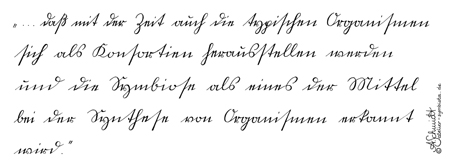 „... daß mit der Zeit auch die typischen Organismen
sich als Konsortien herausstellen werden
und die Symbiose als eines der Mittel
bei der Synthese von Organismen erkannt
wird.“